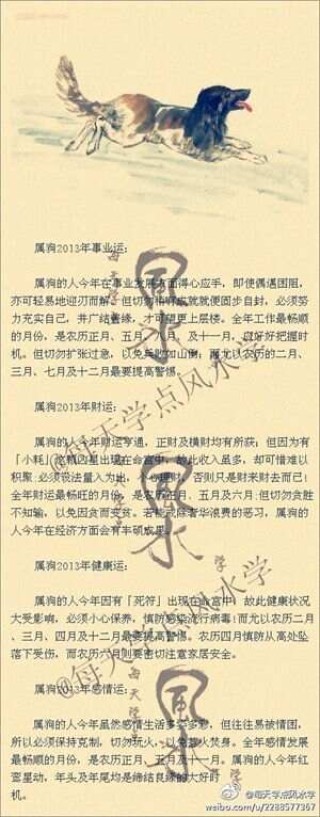 属狗2013年事业运:
属狗的人今年在事业发展方面得心应手，即使偶遇困阻，
亦可轻易地迎刃而解。但切勿稍有成就就便固步自封，必须努
力充实自己，并广结善缘，才可望更上层楼。全年工作最畅顺
的月份，是农历正月、五月、九月、及十一月，宜好好把握时
机。但切勿扩张过急，以免兵败如山倒；而尤以农历的二月、
三月、七月及十二月最要提高警惕。
属狗2013年财运:
属狗的人今年财运亨通，正财及横财均有所获；但因为有
「小耗」这颗凶星出现在命宫中，故此收入虽多，却可惜难以
积聚；必须设法量入为出，小心理财，否则只是财来财去而已！
全年财运最畅旺的月份，是农历正月、五月及六月；但切勿贪胜
不知输，以免因贪而变贫。若能戒除奢华浪费的恶习，属狗的
人今年在经济方面会有丰硕成果。
属狗2013年健康运:
属狗的人今年因有「死符」出现在命宫中，故此健康状况
大受影响，必须小心保养，慎防感染流行病毒；而尤以农历二月
、三月、四月及十二月最要提高警惕。农历四月慎防从高处坠
落下受伤，而农历六月则要密切注意家居安全。
属狗2013年感情运:
属狗的人今年虽然感情生活多姿多彩，但往往易被情困，
所以必须保持克制，切勿玩火，以免惹火焚身。全年感情发展
最畅顺的月份，是农历正月、五月及十一月。属狗的人今年红
鸾星动，年头及年尾均是缔结良缘的大好时
机。
风水
@每天学点风水学
风水
@每天学点风水学
风水
@每天学点风水学
@每天学点风水学
weibo.com/u/2288577367